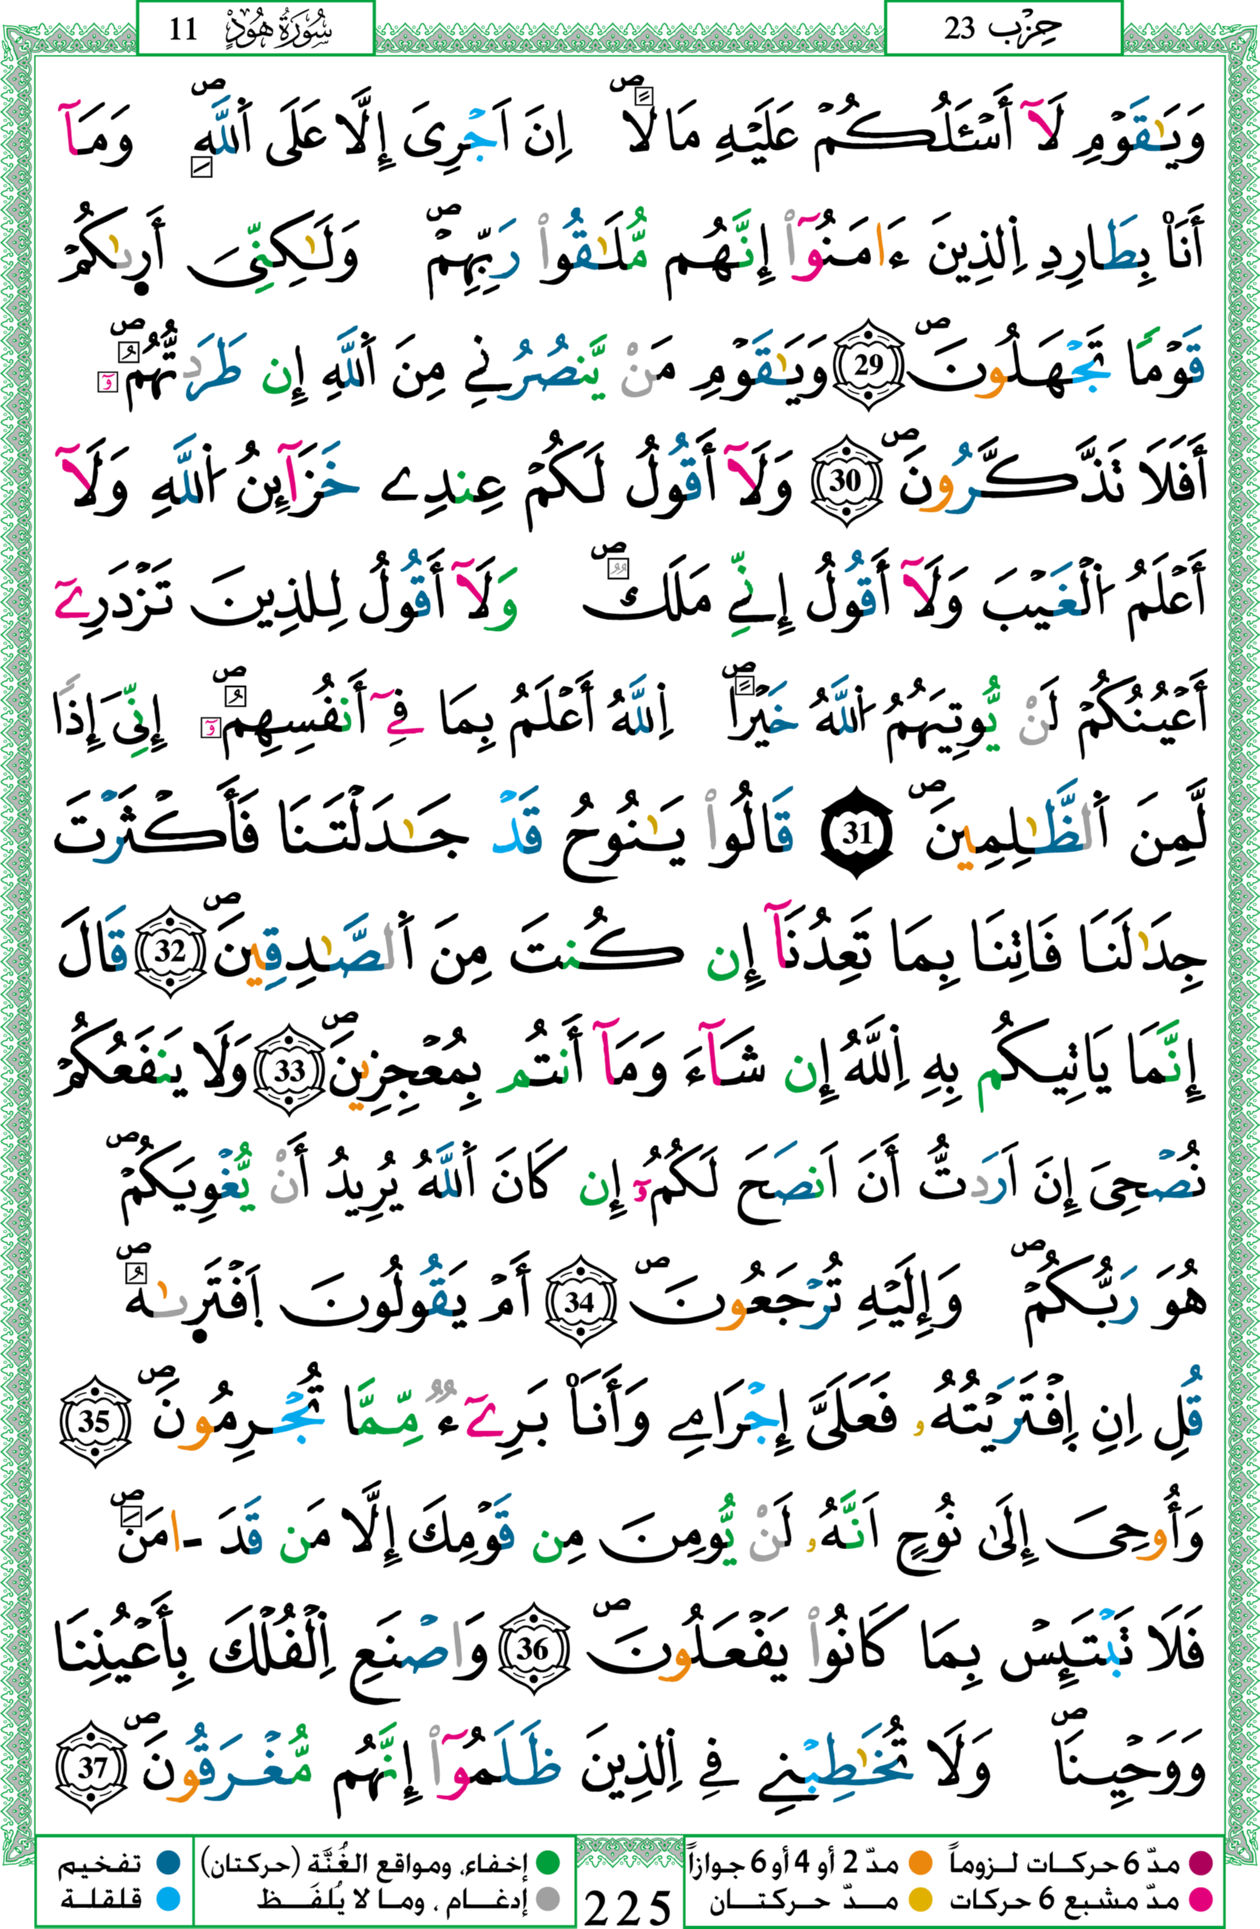 حزب 23
سُورَةُ هُودٍ 11
وَيَٰقَوْمِ لَآ أَسْـَٔلُكُمْ عَلَيْهِ مَالًاۖ اِنَ اَجْرِىَ إِلَّا عَلَى اَ۬للَّهِۖ وَمَآ
أَنَا۠ بِطَارِدِ اِ۬لذِينَ ءَامَنُوٓاْۖ إِنَّهُم مُّلَٰقُواْ رَبِّهِمْۖ وَلَٰكِنِّىَ أَر۪يٰكُمْ
قَوْمًا تَجْهَلُونَۖ 29 وَيَٰقَوْمِ مَنْ يَّنصُرُنِے مِنَ اَ۬للَّهِ إِن طَرَدتُّهُمُۥٓۖ
أَفَلَا تَذَّكَّرُونَۖ 30 وَلَآ أَقُولُ لَكُمْ عِندِے خَزَآئِنُ اُ۬للَّهِ وَلَآ
أَعْلَمُ اُ۬لْغَيْبَ وَلَآ أَقُولُ إِنِّے مَلَكٌۖ وَلَآ أَقُولُ لِلذِينَ تَزْدَرِےٓ
أَعْيُنُكُمْ لَنْ يُّوتِيَهُمُ اُ۬للَّهُ خَيْراًۖ اِ۬للَّهُ أَعْلَمُ بِمَا فِےٓ أَنفُسِهِمُۥٓۖ إِنِّىَ إِذًا
لَّمِنَ اَ۬لظَّٰلِمِينَۖ 31 قَالُواْ يَٰنُوحُ قَدْ جَٰدَلْتَنَا فَأَكْثَرْتَ
جِدَٰلَنَا فَاتِنَا بِمَا تَعِدُنَآ إِن كُنتَ مِنَ اَ۬لصَّٰدِقِينَۖ 32 قَالَ
إِنَّمَا يَاتِيكُم بِهِ اِ۬للَّهُ إِن شَآءَ وَمَآ أَنتُم بِمُعْجِزِينَۖ 33 وَلَا يَنفَعُكُمْ
نُصْحِىَ إِنَ اَرَدتُّ أَنَ اَنصَحَ لَكُمُۥٓ إِن كَانَ اَ۬للَّهُ يُرِيدُ أَنْ يُّغْوِيَكُمْۖ
هُوَ رَبُّكُمْۖ وَإِلَيْهِ تُرْجَعُونَۖ 34 أَمْ يَقُولُونَ اَ۪فْتَر۪يٰهُۖ
قُلِ اِنِ اِ۪فْتَرَيْتُهُۥ فَعَلَىَّ إِجْرَامِے وَأَنَا۠ بَرِےٓءٌ مِّمَّا تُجْرِمُونَۖ 35
وَأُوحِىَ إِلَىٰ نُوحٍ اَنَّهُۥ لَنْ يُّومِنَ مِن قَوْمِكَ إِلَّا مَن قَدَ ـ امَنَۖ
فَلَا تَبْتَئِسْ بِمَا كَانُواْ يَفْعَلُونَۖ 36 وَاصْنَعِ اِ۬لْفُلْكَ بِأَعْيُنِنَا
وَوَحْيِنَاۖ وَلَا تُخَٰطِبْنِے فِے اِ۬لذِينَ ظَلَمُوٓاْ إِنَّهُم مُّغْرَقُونَۖ 37
مدّ 6 حركات لـزوماً
مدّ 2 أو 4 أو 6 جوازاً
إخفاء، ومواقع الغُنَّة (حركتان)
تفخيم
مدّ مشبع 6 حركات
مــدّ حــركتــان
إدغــام ، ومـا لا يُلفَـظ
قلقلة
225